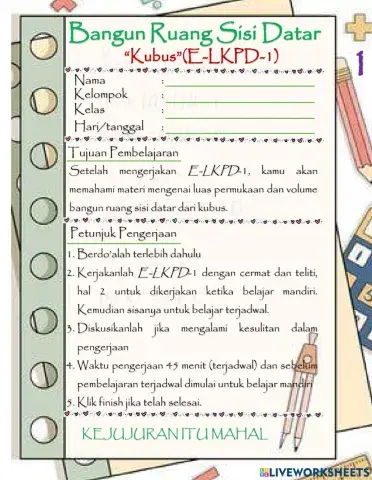 Bangun Ruang Sisi Datar
“Kubus”(E-LKPD-1)
1
Nama :
Kelompok :
Kelas :
Hari/tanggal :
Tujuan Pembelajaran
Setelah mengerjakan E-LKPD-1, kamu akan
memahami materi mengenai luas permukaan dan volume
bangun ruang sisi datar dari kubus.
Petunjuk Pengerjaan
1. Berdo'alah terlebih dahulu
2. Kerjakanlah E-LKPD-1 dengan cermat dan teliti,
hal 2 untuk dikerjakan ketika belajar mandiri.
Kemudian sisanya untuk belajar terjadwal.
3. Diskusikanlah jika mengalami kesulitan dalam
pengerjaan
4. Waktu pengerjaan 45 menit (terjadwal) dan sebelum
pembelajaran terjadwal dimulai untuk belajar mandiri
5. Klik finish jika telah selesai.
KEJUJURAN ITU MAHAL
LIVEWORKSHEETS